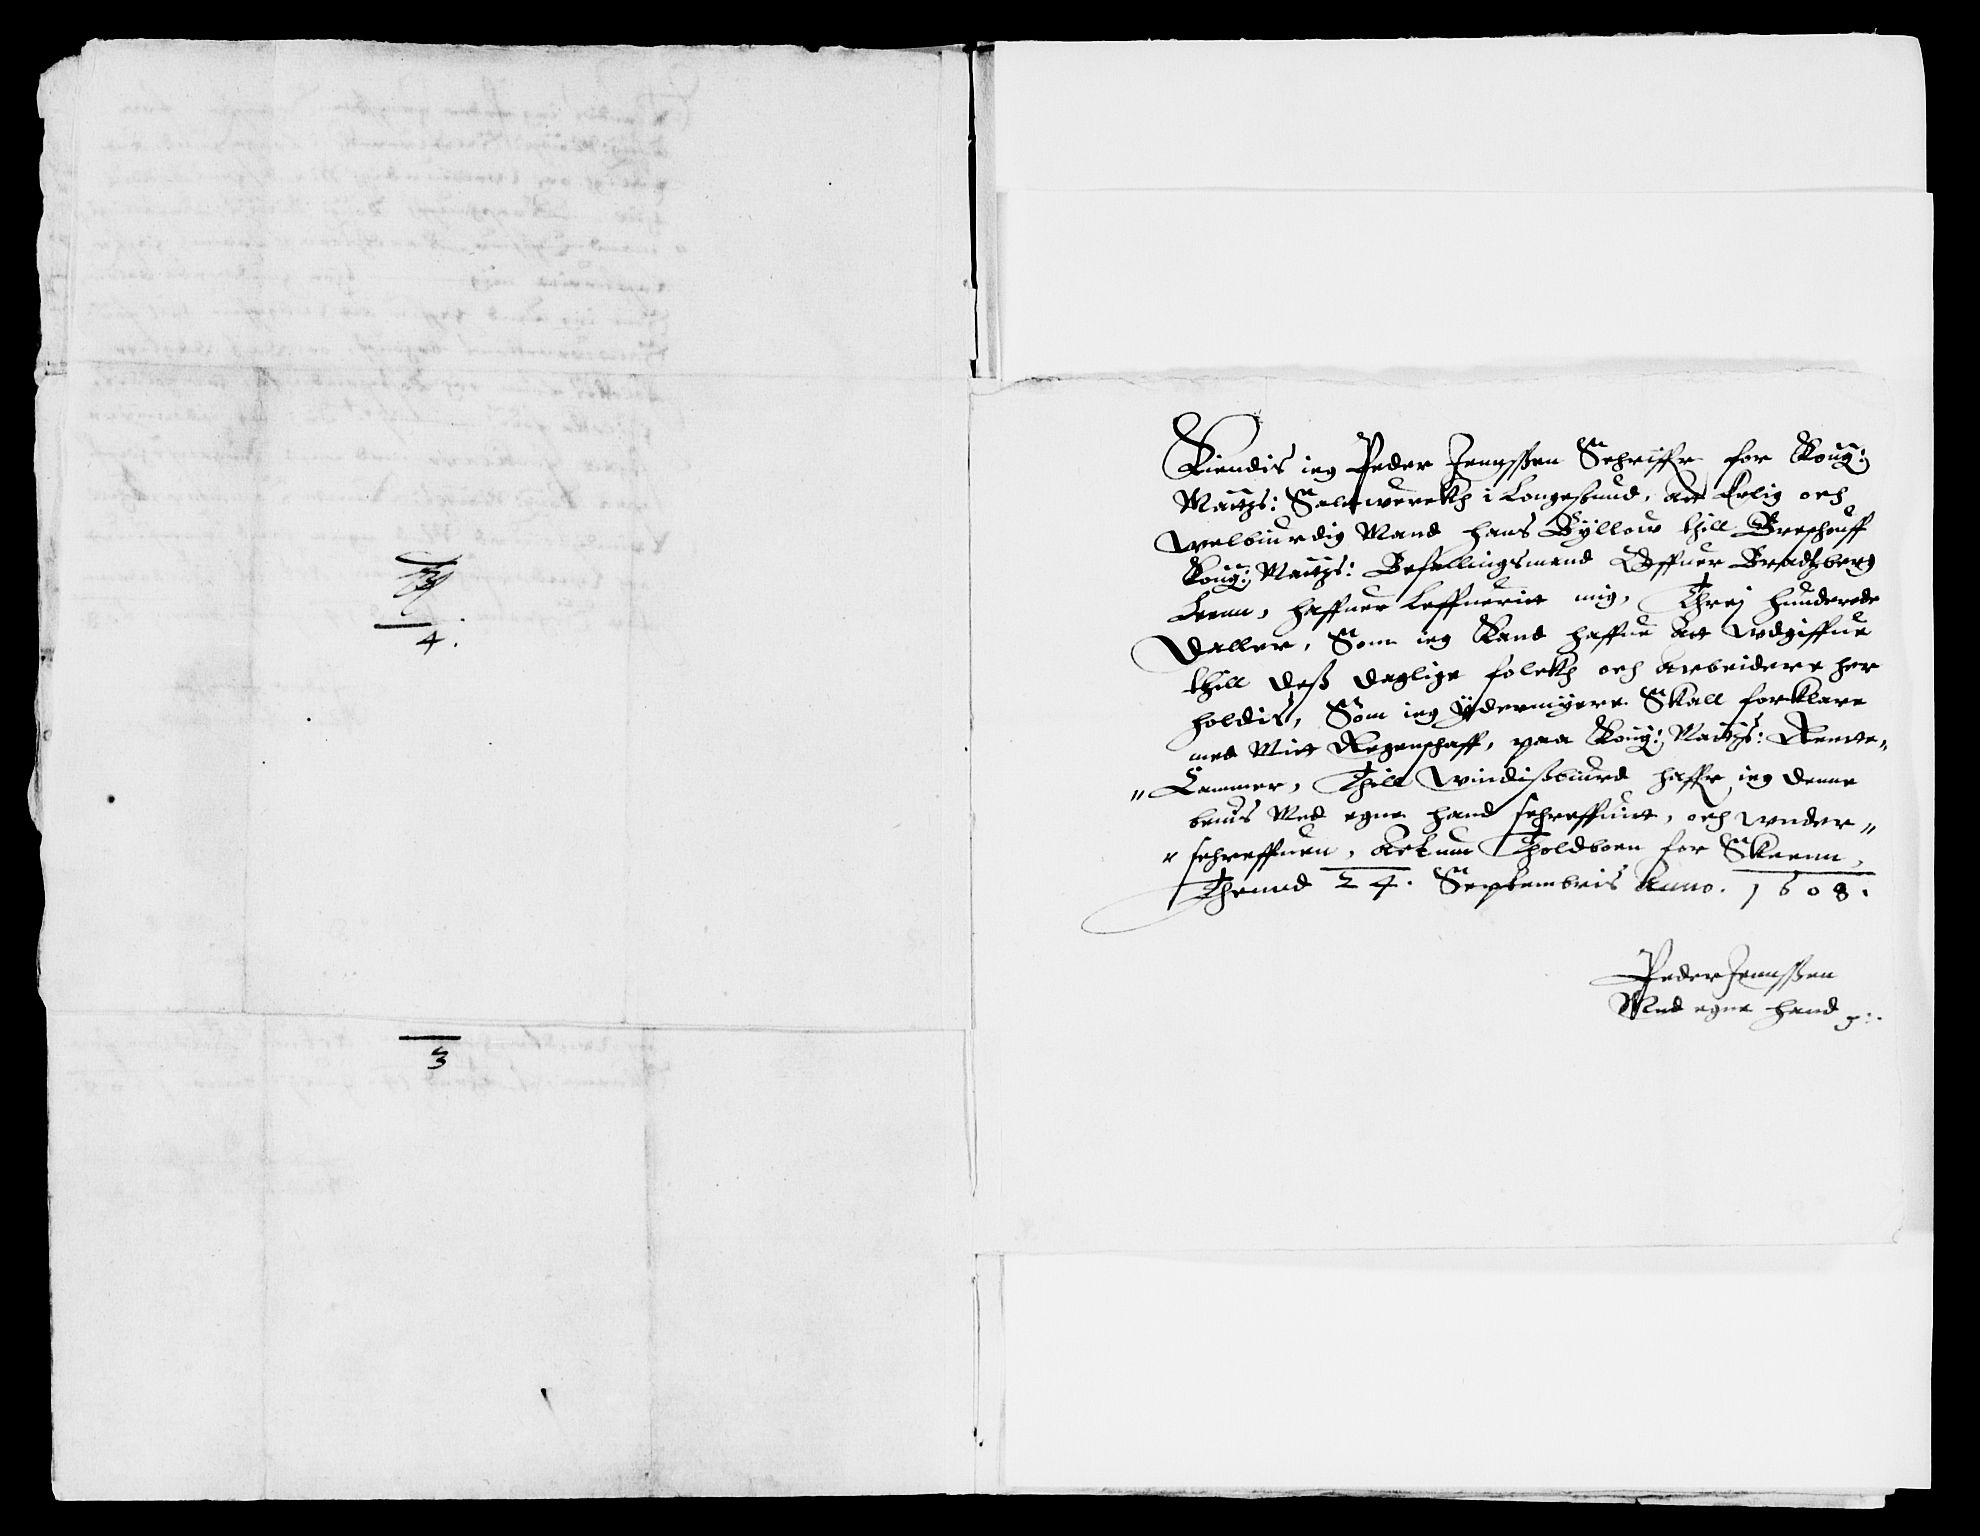 4.
3
Kiendis ieg Peder Jennssen Schriffr for Kong:
Maitzs: Saltwerckh i Langesund, Att Erlig och
welbiurdig Mand Hans Byllow thill
Kong: Maitzs: Befallingsmand Offuer Bradtzberg
Leenn, haffuer Leffuerit mig, Threj hunderede
Daller, Som ieg Kand haffue Att wdgiffue
thill deß daglige folckh och Arbeidere her
holdis, Som ieg ÿdermyere Skall forklare
med Mit Regenschaff, paa Kong: Maitzs: Rennte„
„ Cammer, Thill windißbiurd haffr ieg denne
beuis Med egne hand schreffuit, och wnder„
schreffuen, Actum Tholdboen for Skeenn,
Thennd 24. Septembris Anno. 1608.
Peder Jennssen
Med egne hand